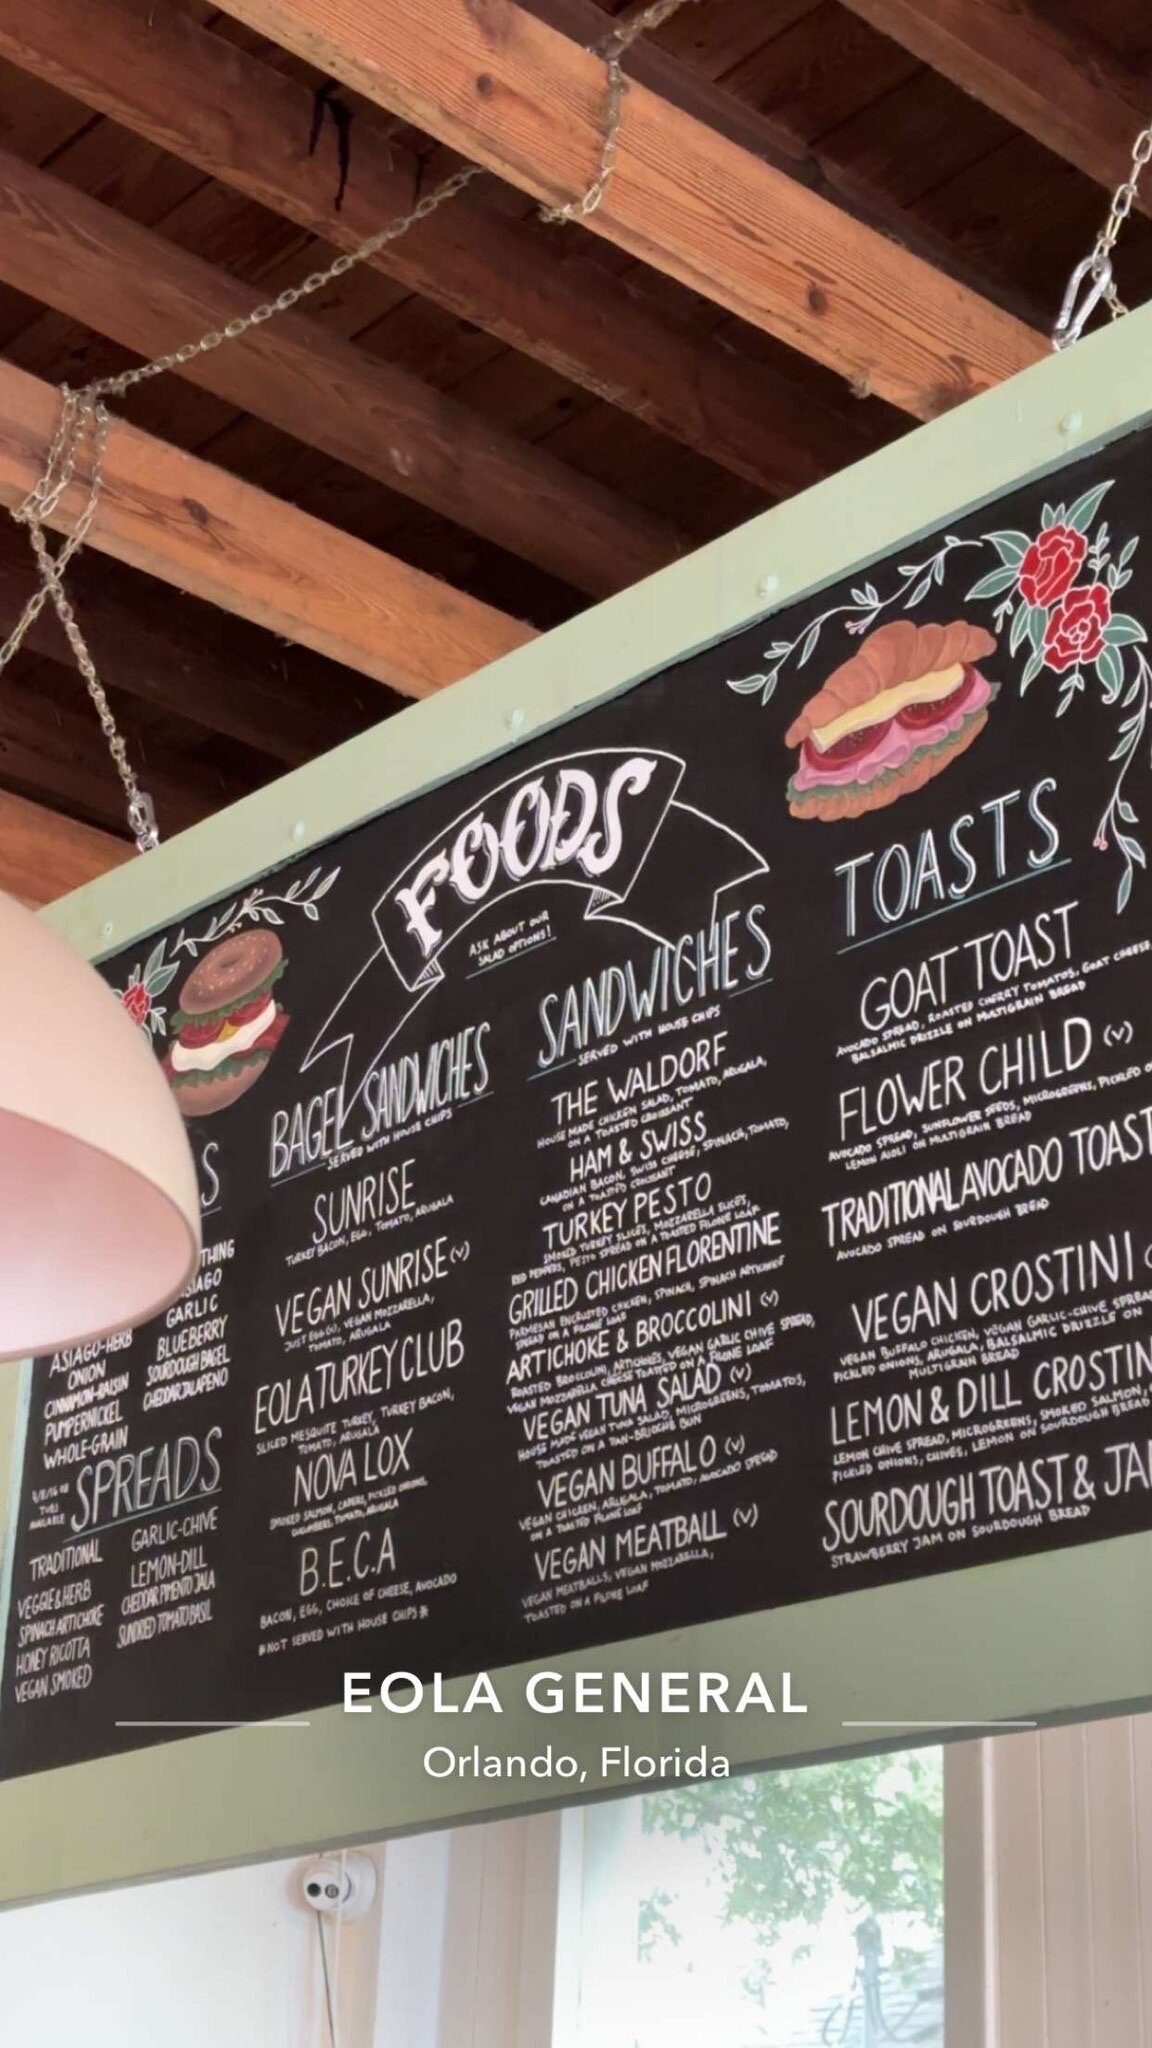 FOODS
ASK ABOUT OUR
SALAD OPTIONS!
ASIAGO-HERB
ONION
CINNAMON-RAISIN
PUMPERNICKEL
WHOLE-GRAIN
GARLIC
BLUEBERRY
SOURDOUGH BAGEL
CHEDDAR JALAPENO
SPREADS
AVAILABLE
TRADITIONAL
VEGGIE & HERB
SPINACH ARTICHOKE
HONEY RICOTTA
VEGAN SMOKED
GARLIC-CHIVE
LEMON-DILL
CHEDDAR PIMENTO JALA
SUNDRIED TOMATO BASIL
BAGEL SANDWICHES
SERVED WITH HOUSE CHIPS
SUNRISE
TURKEY BACON, EGG, TOMATO, ARUGALA
VEGAN SUNRISE (V)
JUST EGG (V), VEGAN MOZZARELLA,
TOMATO, ARUGALA
EOLA TURKEY CLUB
SLICED MESQUITE TURKEY, TURKEY BACON,
TOMATO, ARUGALA
NOVA LOX
SMOKED SALMON, CAPERS, PICKLED ONIONS,
CUCUMBERS, TOMATO, ARUGALA
B.E.C.A
BACON, EGG, CHOICE OF CHEESE, AVOCADO
*NOT SERVED WITH HOUSE CHIPS*
SANDWICHES
SERVED WITH HOUSE CHIPS
THE WALDORF
HOUSE MADE CHICKEN SALAD, TOMATO, ARUGALA,
ON A TOASTED CROISSANT
HAM & SWISS
CANADIAN BACON, SWISS CHEESE, SPINACH, TOMATO,
ON A TOASTED CROISSANT
TURKEY PESTO
SMOKED TURKEY SLICES, MOZZARELLA SLICES,
RED PEPPERS, PESTO SPREAD ON A TOASTED FILONE LOAF
GRILLED CHICKEN FLORENTINE
PARMESAN ENCRUSTED CHICKEN, SPINACH, SPINACH ARTICHOKE
SPREAD ON A FILONE LOAF
ARTICHOKE & BROCCOLINI (V)
ROASTED BROCCOLINI, ARTICHOKES, VEGAN GARLIC CHIVE SPREAD,
VEGAN MOZZARELLA CHEESE TOASTED ON A FILONE LOAF
VEGAN TUNA SALAD (V)
HOUSE MADE VEGAN TUNA SALAD, MICROGREENS, TOMATOS,
TOASTED ON A BUN
VEGAN BUFFALO (V)
VEGAN CHICKEN, ARUGALA, TOMATO, AVOCADO SPREAD
ON A TOASTED FILONE LOAF
VEGAN MEATBALL (V)
VEGAN MEATBALLS, VEGAN MOZZARELLA,
TOASTED ON A FILONE LOAF
TOASTS
GOAT TOAST
AVOCADO SPREAD, ROASTED CHERRY TOMATOS, GOAT CHEESE
BALSALMIC DRIZZLE ON MULTIGRAIN BREAD
FLOWER CHILD (V)
AVOCADO SPREAD, SUNFLOWER SEEDS, MICROGREENS, PICKLED
LEMON AIOLI ON MULTIGRAIN BREAD
TRADITIONAL AVOCADO TOAST
AVOCADO SPREAD ON SOURDOUGH BREAD
VEGAN CROSTINI
VEGAN BUFFALO CHICKEN, VEGAN GARLIC-CHIVE SPREAD
PICKLED ONIONS, ARUGALA, BALSALMIC DRIZZLE ON
MULTIGRAIN BREAD
LEMON & DILL CROSTIN
LEMON CHIVE SPREAD, MICROGREENS, SMOKED SALMON,
PICKLED ONIONS, CHIVES, LEMON ON SOURDOUGH BREAD
SOURDOUGH TOAST & JA
STRAWBERRY JAM ON SOURDOUGH BREAD
EOLA GENERAL
Orlando, Florida